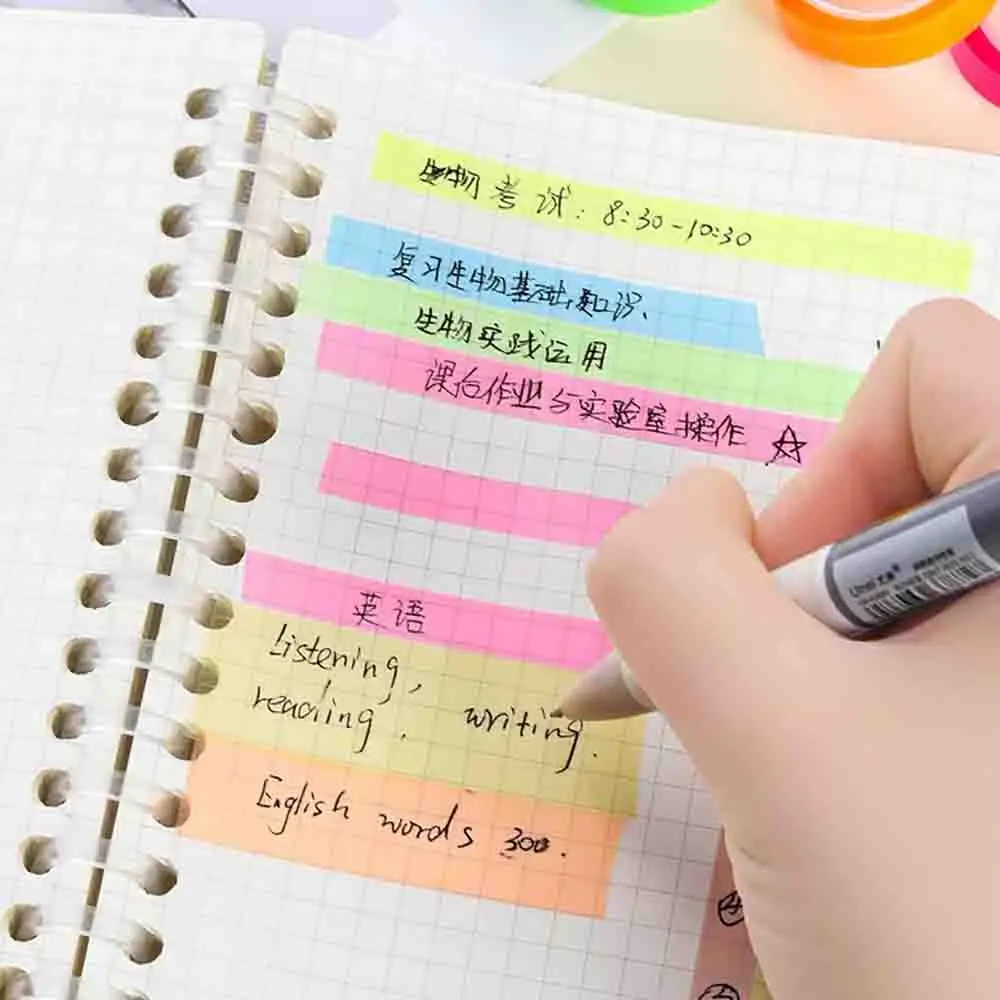 生物考试: 8:30-10:30
复习生物基础知识、
生物实践运用
课后作业与实验室操作 ☆
英语
Listening,
reading, writing.
English words 300.
④